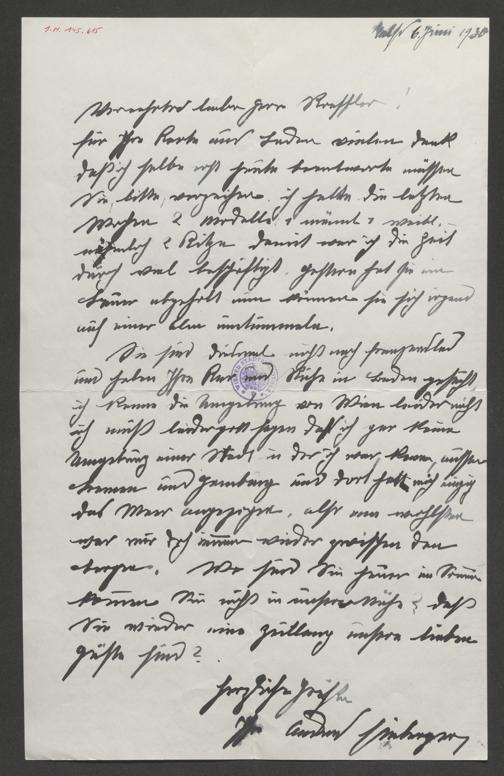 I.N. 145.615
6. Juni 1938
Verehrter lieber Herr Stoessler!
für Ihre Karte aus Baden vielen Dank
daß ich selbe erst heute beantworte müssen
Sie, bitte, verzeihen. ich hatte die letzten
Wochen 2 Modelle, 1 männl. 1 weibl. –
nähmlich 2 Kitze damit war ich die Zeit
durch viel beschäftigt. gestern hat sie ein
Bauer abgeholt nun können sie sich irgend
auf einer Alm tummeln.
Sie sind diesmal nicht nach
und haben Ihre Rast und Ruhe in Baden gesucht
ich kenne die Umgebung von Wien leider nicht
ich muß leidergott sagen daß ich gar keine
Umgebung einer Stadt in der ich war, kenne, ausser
Bremen und Hamburg und dort hat mich einzig
das Meer angezogen, also am wohlsten
war mir doch immer wieder zwischen den
Bergen. Wo sind Sie heuer im Sommer
kommen Sie nicht in unsere Nähe? daß
Sie wieder eine zeitlang unsere lieben
Gäste sind?
herzliche Grüße
Ihr